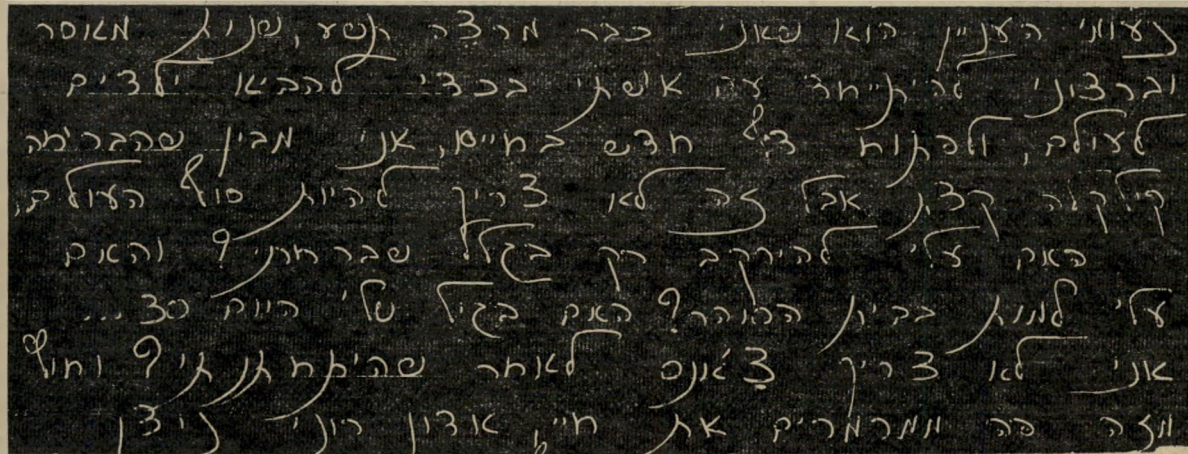 לעומי העניין הוא שאני כבר מרצה תשע שנות מאסר
וברצוני להיתייחד עם אישתי בכדי להביא ילדים
לעולם, ולפתוח דף חדש בחיים, אני מבין שהבריחה
קילקלה קצת אבל זה לא צריך להיות סוף העולם,
האם עלי להירקב רק בגלל שברחתי? והאם
עלי למות בבית הסוהר? האם בגיל שלי היום 30...
אני לא צריך צ'אנס לאחר שהיתחתנתי? וחוץ
מזה פה ממרמרים את חיי, אדון רוני ניצן